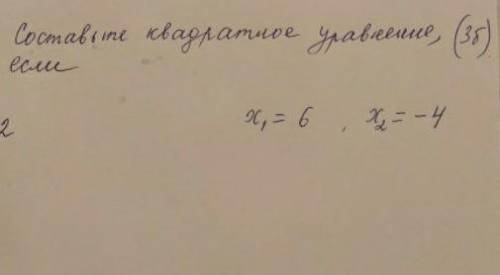 Составьте квадратное уравнение, (3б)
если
2
x₁ = 6 , x₂ = -4